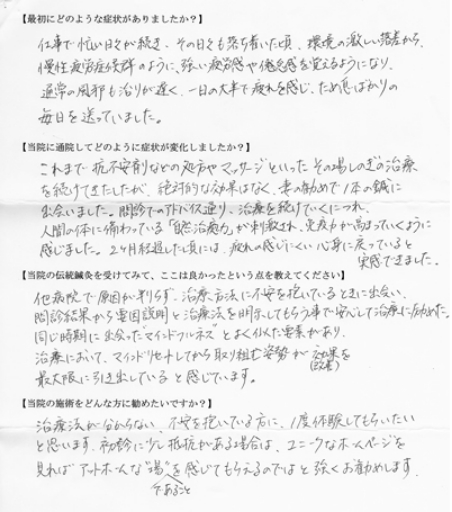 【最初にどのような症状がありましたか？】
仕事で忙しい日々が続き、その日々も落ち着いた頃、環境の激しい落差から、
慢性疲労症候群のように、強い疲労感や倦怠感を覚えるようになり、
通常の風邪も治りが遅く、一日の大半で疲れを感じ、ため息ばかりの
毎日を送っていました。
【当院に通院してどのように症状が変化しましたか？】
これまで抗不安剤などの処方やマッサージといったその場しのぎの治療
を続けてきたしたが、絶対的な効果はなく、妻の勧めで1本の鍼に
出会いました。問診でのアドバイス通り、治療を続けていくにつれ、
人間の体に備わっている「自然治癒力」が刺激され、免疫力が高まっていくように
感じました。2ヶ月経過した頃には、疲れの感じにくい心身に戻っていると
実感できました。
【当院の伝統鍼灸を受けてみて、ここは良かったという点を教えてください】
他病院で原因が判らず、治療方法に不安を抱いているときに出会い、
問診結果から要因説明と治療法を明示してもらう事で安心して治療に励めた。
同じ時期に出会った"マインドフルネス"とよく似た要素があり、
治療において、マインドリセットしてから取り組む姿勢が効果を
(改善)
最大限に引き出していると感じています。
【当院の施術をどんな方に勧めたいですか？】
治療法が分からない、不安を抱いている方に、1度体験してもらいたい
と思います。初診に少し抵抗がある場合は、ユニークなホームページを
見ればアットホームな"場"を感じてもらえるのではと強くお勧めします。
であること